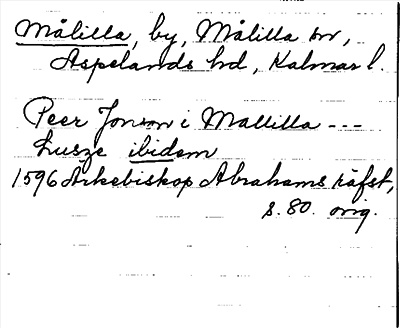 Målilla, by, Målilla sn,
Aspelands hd, Kalmar l.
Peer Jonson i Mallilla ---
Lusze ibidem
1596 Ärkebiskop Abrahams räfst,
s. 80. orig.